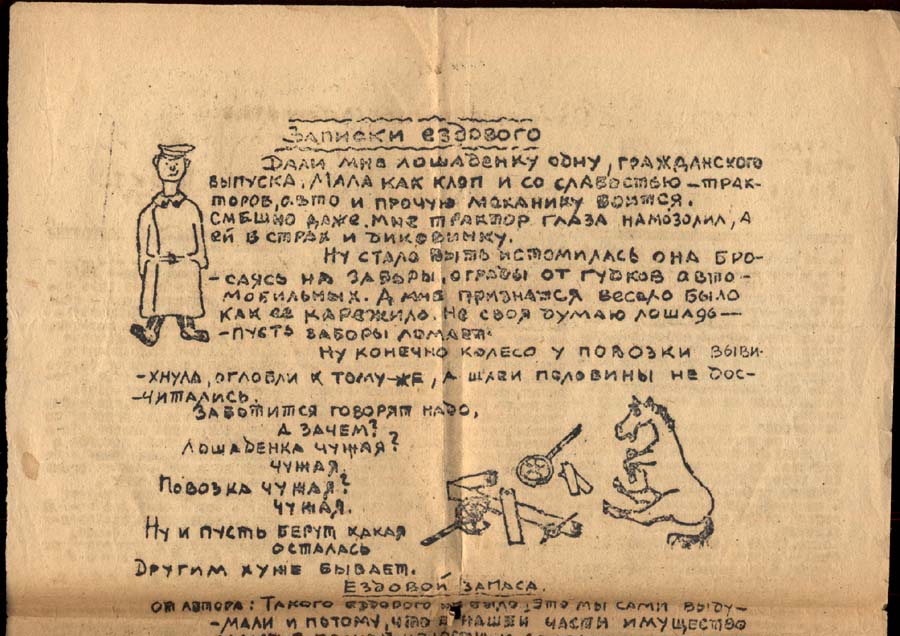 Записки ездового
Дали мне лошаденку одну, гражданского
выпуска. Мала как клоп и со слабостью – трак-
торов, авто и прочую механику боится.
Смешно даже. Мне трактор глаза намозолил, а
ей в страх и диковинку.
Ну стало быть истомилась она бро-
-саясь на заборы, ограды от гудков авто-
мобильных. А мне признатся весело было
как ее карежило. Не своя думаю лошадь —
-пусть заборы ломает.
Ну конечно колесо у повозки выви-
-хнула, оглобли к тому-же, а шлеи половины не дос-
-читались.
Заботится говорят надо,
А зачем?
Лошаденка чужая?
чужая.
Повозка чужая?
чужая.
Ну и пусть берут какая
осталась
Другим хуже бывает.
Ездовой запаса.
от автора: Такого ездового не было, это мы сами выду-
-мали и потому, что в нашей части имущество